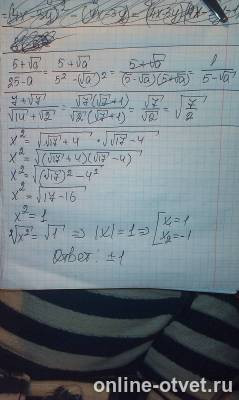 (5+√a)/(25-a) = (5+√a)/(5²-(√a)²) = (5+√a)/((5-√a)(5+√a)) = 1/(5-√a)
(7+√7)/(√14+√2) = √7(√7+1)/(√2(√7+1)) = √7/√2 = √(7/2)
x² = √(√17+4) · √(√17-4)
x² = √((√17+4)(√17-4))
x² = √((√17)²-4²)
x² = √(17-16)
x² = 1
√x² = √1 ⇒ |x| = 1 ⇒ [x₁=1
x₂=-1
Ответ: ±1
online-otvet.ru